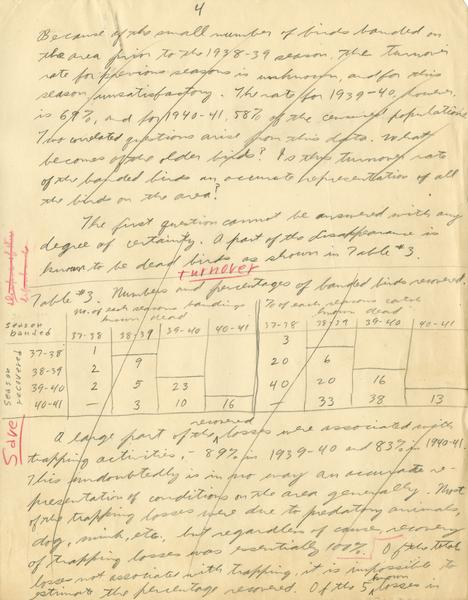 4
Because of the small number of birds banded on
the area prior to the 1938-39 season, the turnover
rate for previous seasons is unknown, and for this
season unsatisfactory. The rate for 1939-40, however,
is 69%, and for 1940-41, 58% of the censused population.
Two correlated questions arise from this data. What
becomes of the older birds? Is this turnover rate
of the banded birds an accurate representation of all
the birds on the area?
The first question cannot be answered with any
degree of certainty. A part of the disappearance is
known to be dead birds as shown in Table #3.
turnover
Table #3. Numbers and percentages of banded birds recovered.
season banded No. of each seasons bandings known dead % of each seasons known dead
37-38 38-39 39-40 40-41 37-38 38-39 39-40 40-41
season recovered
37-38 1 3
38-39 2 9 20 6
39-40 2 5 23 40 20 16
40-41 — 3 10 16 — 33 38 13
Save
recovered
A large part of the losses were associated with
trapping activities, - 89% in 1939-40 and 83% in 1940-41.
This undoubtedly is in no way an accurate re-
presentation of conditions on the area generally. Most
of the trapping losses were due to predatory animals,
dog, mink, etc. but regardless of cause, recovery
of trapping losses was essentially 100%. Of the total
losses not associated with trapping, it is impossible to
estimate the percentage recovered. Of the 5 known losses in